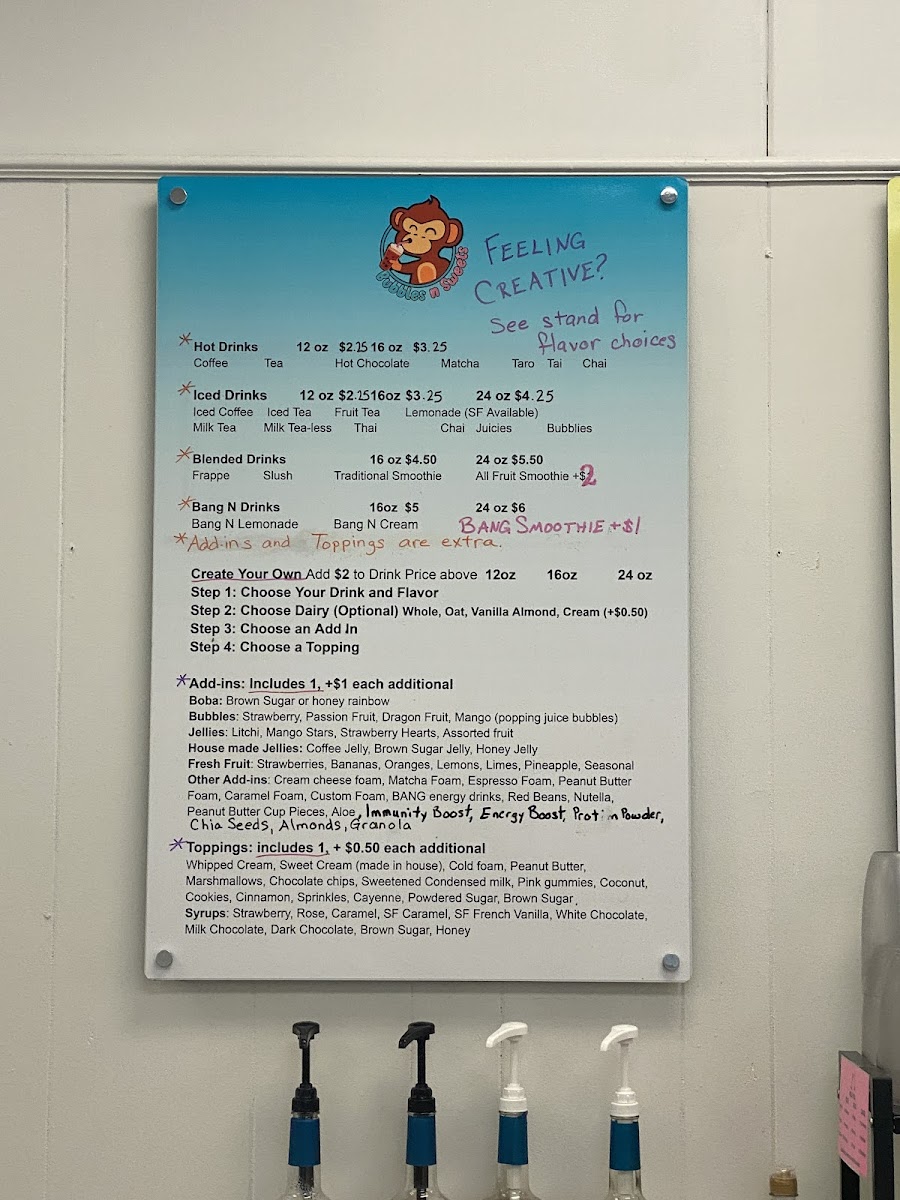 Bubbles n Sweets
FEELING
CREATIVE?
See stand for
flavor choices
*Hot Drinks 12 oz $2.25 16 oz $3.25
Coffee Tea Hot Chocolate Matcha Taro Tai Chai
*Iced Drinks 12 oz $2.25 16oz $3.25 24 oz $4.25
Iced Coffee Iced Tea Fruit Tea Lemonade (SF Available)
Milk Tea Milk Tea-less Thai Chai Juicies Bubblies
*Blended Drinks 16 oz $4.50 24 oz $5.50
Frappe Slush Traditional Smoothie All Fruit Smoothie +$2
*Bang N Drinks 16oz $5 24 oz $6
Bang N Lemonade Bang N Cream BANG SMOOTHIE +$1
*Add-ins and Toppings are extra.
Create Your Own Add $2 to Drink Price above 12oz 16oz 24 oz
Step 1: Choose Your Drink and Flavor
Step 2: Choose Dairy (Optional) Whole, Oat, Vanilla Almond, Cream (+$0.50)
Step 3: Choose an Add In
Step 4: Choose a Topping
*Add-ins: Includes 1, +$1 each additional
Boba: Brown Sugar or honey rainbow
Bubbles: Strawberry, Passion Fruit, Dragon Fruit, Mango (popping juice bubbles)
Jellies: Litchi, Mango Stars, Strawberry Hearts, Assorted fruit
House made Jellies: Coffee Jelly, Brown Sugar Jelly, Honey Jelly
Fresh Fruit: Strawberries, Bananas, Oranges, Lemons, Limes, Pineapple, Seasonal
Other Add-ins: Cream cheese foam, Matcha Foam, Espresso Foam, Peanut Butter
Foam, Caramel Foam, Custom Foam, BANG energy drinks, Red Beans, Nutella,
Peanut Butter Cup Pieces, Aloe, Immunity Boost, Energy Boost, Protin Powder,
Chia Seeds, Almonds, Granola
*Toppings: includes 1, + $0.50 each additional
Whipped Cream, Sweet Cream (made in house), Cold foam, Peanut Butter,
Marshmallows, Chocolate chips, Sweetened Condensed milk, Pink gummies, Coconut,
Cookies, Cinnamon, Sprinkles, Cayenne, Powdered Sugar, Brown Sugar,
Syrups: Strawberry, Rose, Caramel, SF Caramel, SF French Vanilla, White Chocolate,
Milk Chocolate, Dark Chocolate, Brown Sugar, Honey